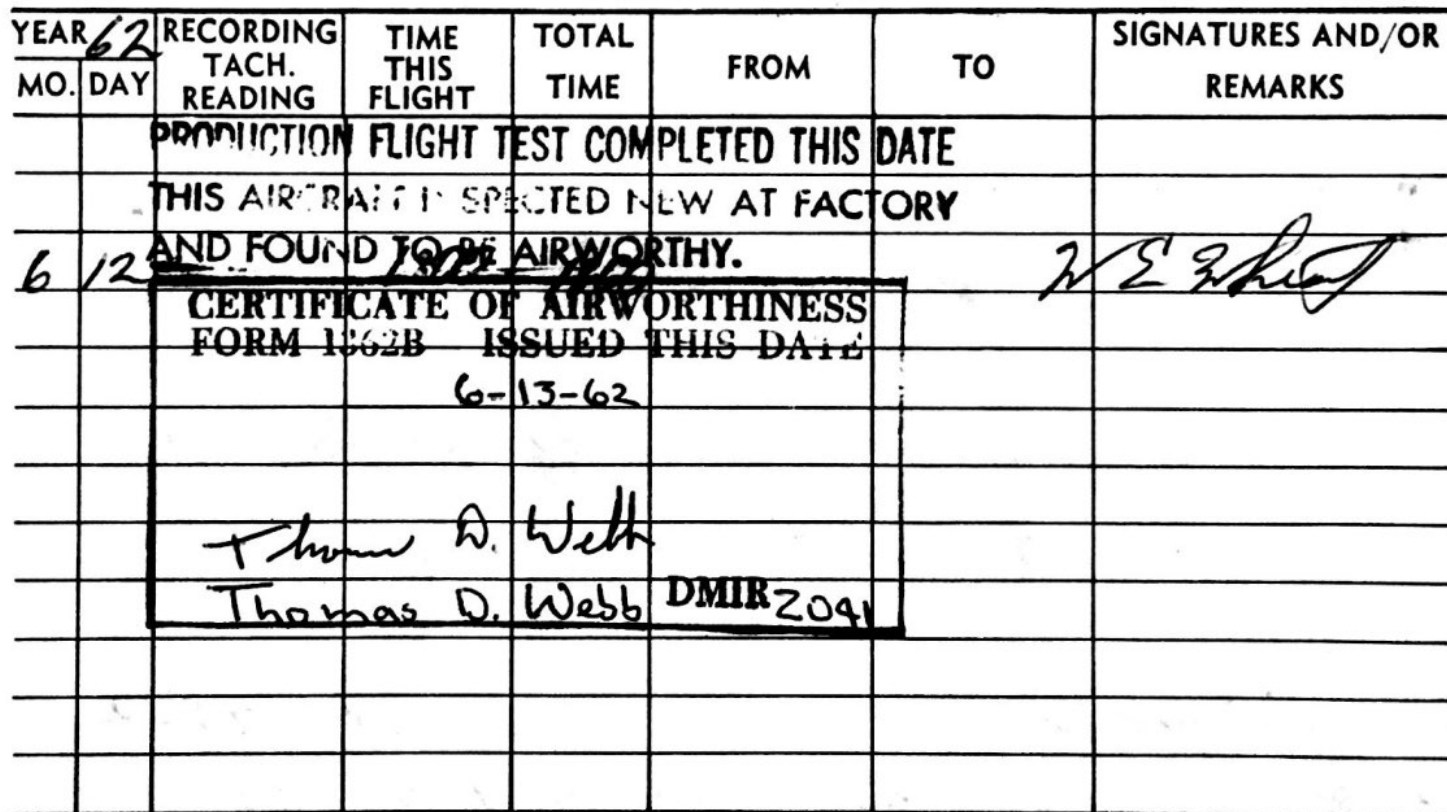 YEAR 62 RECORDING TACH. READING TIME THIS FLIGHT TOTAL TIME FROM TO SIGNATURES AND/OR REMARKS
MO. DAY
PRODUCTION FLIGHT TEST COMPLETED THIS DATE
THIS AIRCRAFT INSPECTED NEW AT FACTORY
AND FOUND TO BE AIRWORTHY.
6 12 W E
CERTIFICATE OF AIRWORTHINESS
FORM 1362B ISSUED THIS DATE
6-13-62
Thomas D. Webb
Thomas D. Webb DMIR 2041